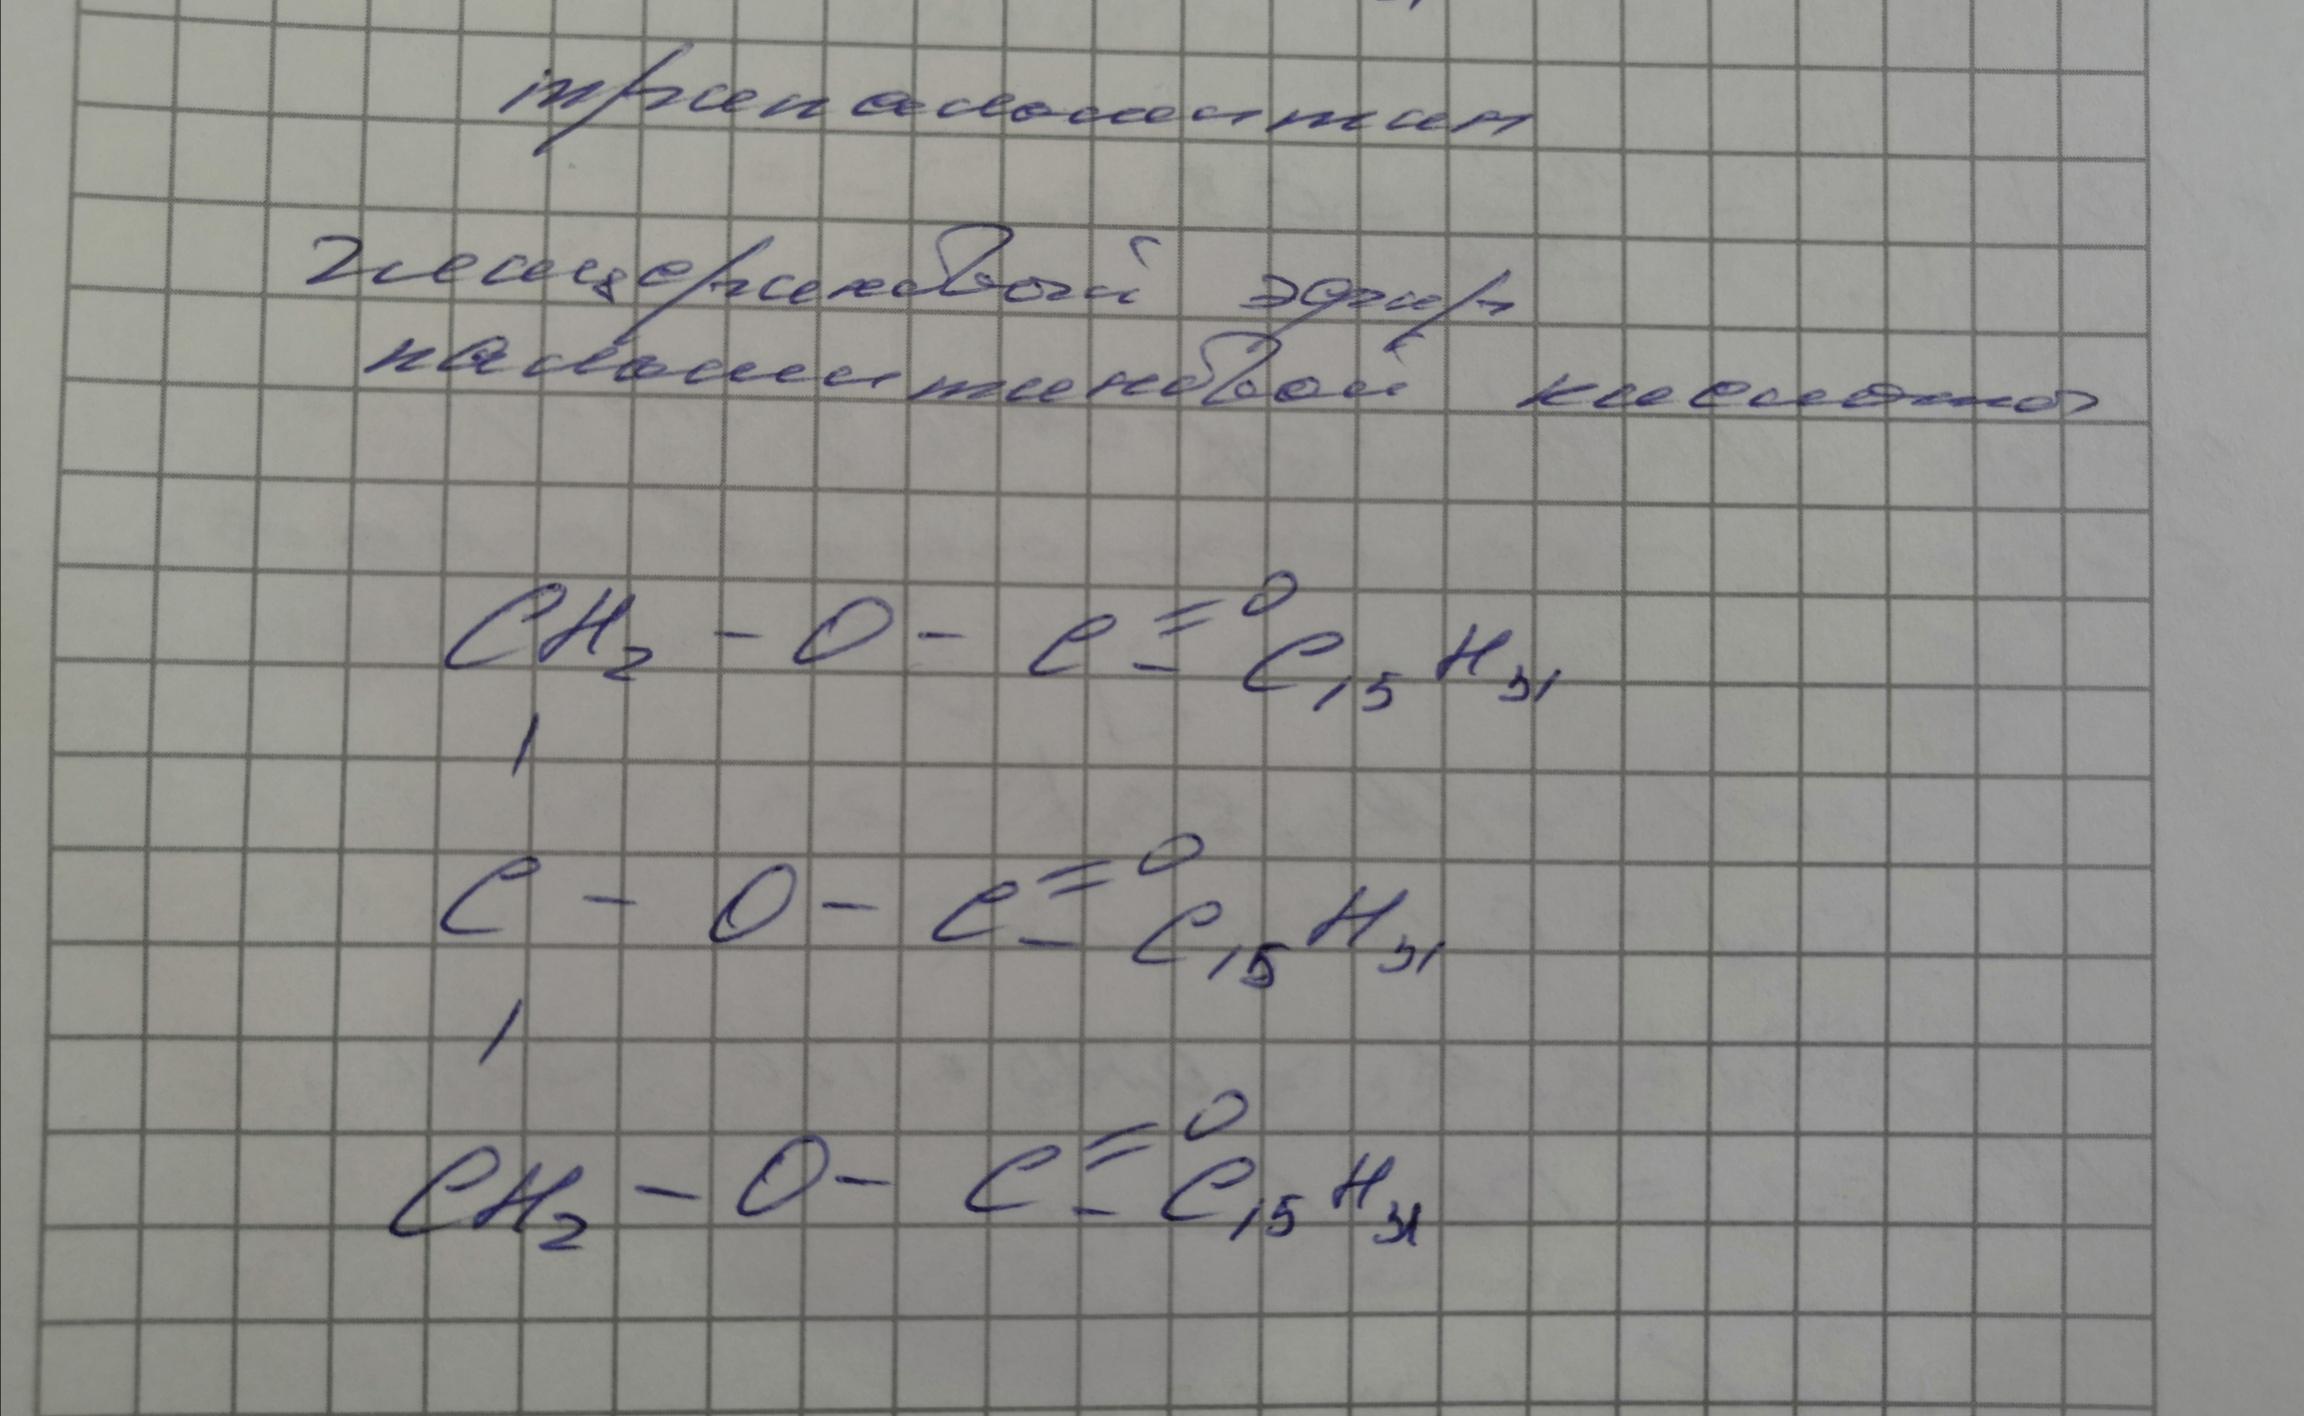 трипальмитин
глицериновый эфир
пальмитиновой кислоты
CH₂ - O - C = O
- C₁₅H₃₁
|
C - O - C = O
- C₁₅H₃₁
|
CH₂ - O - C = O
- C₁₅H₃₁